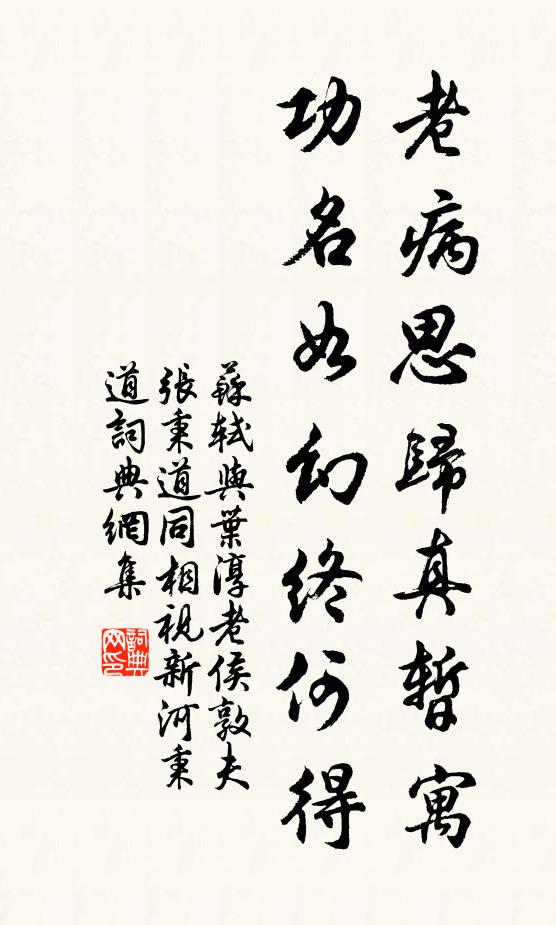 老病思歸真暫寓
功名如幻終何得
蘇軾與葉淳老侯敦夫
張秉道同相視新河秉
道詞典網集
詞典
网印